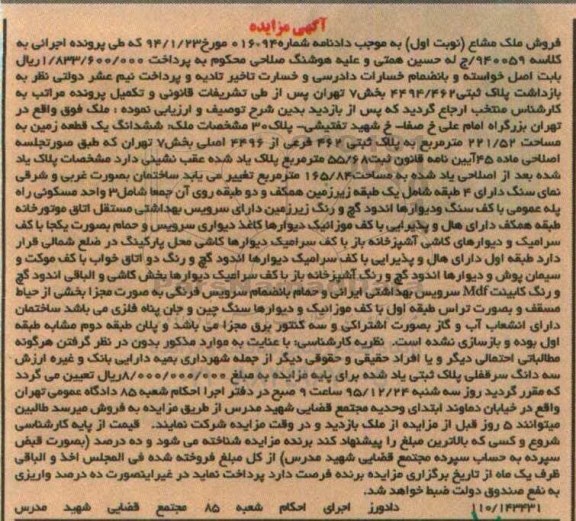 آگهی مزایده
فروش ملک مشاع (نوبت اول) به موجب دادنامه شماره۰۱۶۰۹۴ مورخ۹۴/۱/۲۳ که طی پرونده اجرائی به
کلاسه ۹۴۰۰۵۹/ج له حسین همتی و علیه هوشنگ صلاحی محکوم به پرداخت ۱/۸۳۳/۶۰۰/۰۰۰ریال
بابت اصل خواسته و بانضمام خسارات دادرسی و خسارت تاخیر تادیه و پرداخت نیم عشر دولتی نظر به
بازداشت پلاک ثبتی۴۴۹۴/۴۶۲ بخش۷ تهران پس از طی تشریفات قانونی و تکمیل پرونده مراتب به
کارشناس منتخب ارجاع گردید که پس از بازدید بدین شرح توصیف و ارزیابی نموده : ملک فوق واقع در
تهران بزرگراه امام علی خ صفا– خ شهید تفتیشی– پلاک۳۰ مشخصات ملک: ششدانگ یک قطعه زمین به
مساحت ۲۲۱/۵۲ مترمربع به پلاک ثبتی ۴۶۲ فرعی از ۴۴۹۶ اصلی بخش۷ تهران که طبق صورتجلسه
اصلاحی ماده ۴۵آیین نامه قانون ثبت۵۵/۶۸ مترمربع پلاک یاد شده عقب نشینی دارد مشخصات پلاک یاد
شده بعد از اصلاحی یاد شده به مساحت۱۶۵/۸۴ مترمربع تغییر می یابد ساختمان بصورت غربی و شرقی
نمای سنگ دارای ۴ طبقه شامل یک طبقه زیرزمین همکف و دو طبقه روی آن جمعا شامل۳ واحد مسکونی راه
پله عمومی با کف سنگ ودیوارها اندود گچ و رنگ زیرزمین دارای سرویس بهداشتی مستقل اتاق موتورخانه
طبقه همکف دارای هال و پذیرایی با کف موزائیک دیوارها کاغذ دیواری سرویس و حمام بصورت یکجا با کف
سرامیک و دیوارهای کاشی آشپزخانه باز با کف سرامیک دیوارها کاشی محل پارکینگ در ضلع شمالی قرار
دارد طبقه اول دارای هال و پذیرایی با کف سرامیک دیوارها اندود گچ و رنگ دو اتاق خواب با کف موکت و
سیمان پوش و دیوارها اندود گچ و رنگ آشپزخانه باز با کف سرامیک دیوارها بخش کاشی و الباقی اندود گچ
و رنگ کابینت Mdf سرویس بهداشتی ایرانی و حمام بانضمام سرویس فرنگی به صورت مجزا بخشی از حیاط
مسقف و بصورت تراس طبقه اول با کف موزائیک و دیوارها سنگ چین و جان پناه فلزی می باشد ساختمان
دارای انشعاب آب و گاز بصورت اشتراکی و سه کنتور برق مجزا می باشد و پلان طبقه دوم مشابه طبقه
اول بوده و بازسازی نشده است. نظریه کارشناسی: با عنایت به موارد مذکور بدون در نظر گرفتن هرگونه
مطالباتی احتمالی دیگر و یا افراد حقیقی و حقوقی دیگر از جمله شهرداری بمیه دارایی بانک و غیره ارزش
سه دانگ سرقفلی پلاک ثبتی یاد شده برای پایه مزایده به مبلغ ۸/۰۰۰/۰۰۰/۰۰۰ریال تعیین می گردد
که مقرر گردید روز سه شنبه ۹۵/۱۲/۲۴ ساعت ۹ صبح در دفتر اجرا احکام شعبه ۸۵ دادگاه عمومی تهران
واقع در خیابان دماوند ابتدای وحدیه مجتمع قضایی شهید مدرس از طریق مزایده به فروش میرسد طالبین
میتوانند ۵ روز قبل از مزایده از ملک بازدید و در وقت مزایده شرکت نمایند. قیمت از پایه کارشناسی
شروع و کسی که بالاترین مبلغ را پیشنهاد کند برنده مزایده شناخته می شود و ده درصد (بصورت قبض
سپرده به حساب سپرده مجتمع قضایی شهید مدرس) از کل مبلغ فروخته شده فی المجلس اخذ و الباقی
ظرف یک ماه از تاریخ برگزاری مزایده برنده فرصت دارد پرداخت نماید در غیراینصورت ده درصد واریزی
به نفع صندوق دولت ضبط خواهد شد.
۱۱۰/۱۴۳۲۳۱ دادورز اجرای احکام شعبه ۸۵ مجتمع قضایی شهید مدرس